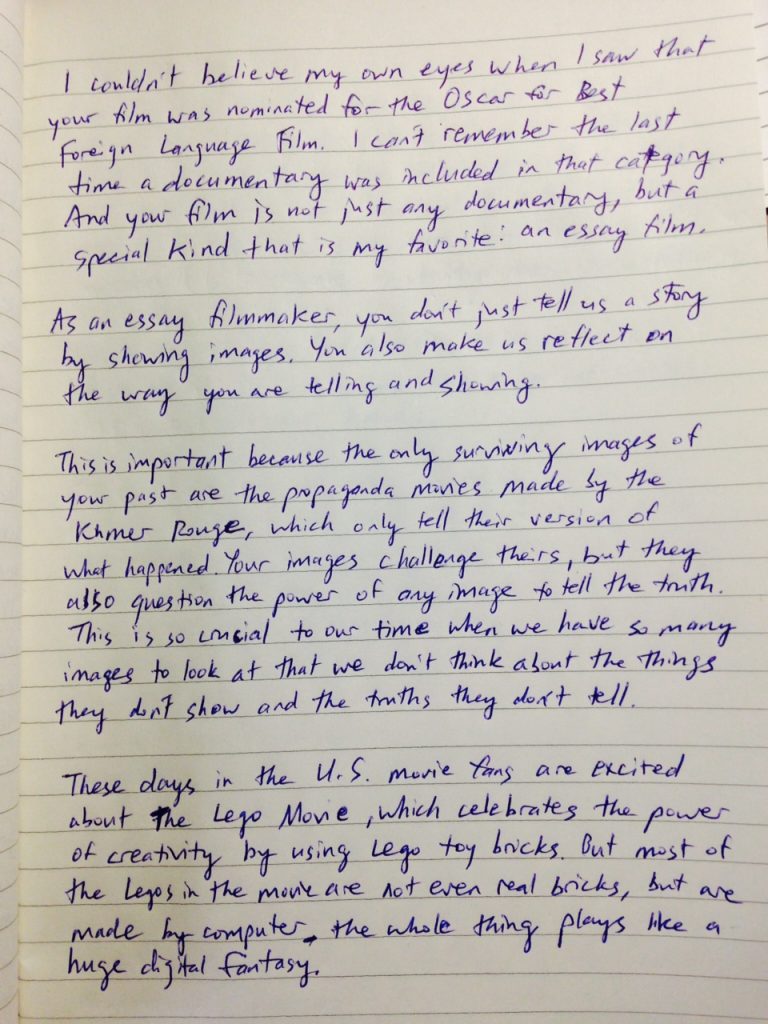 I couldn't believe my own eyes when I saw that
your film was nominated for the Oscar for Best
Foreign Language Film. I can't remember the last
time a documentary was included in that category.
And your film is not just any documentary, but a
special kind that is my favorite: an essay film.
As an essay filmmaker, you don't just tell us a story
by showing images. You also make us reflect on
the way you are telling and showing.
This is important because the only surviving images of
your past are the propaganda movies made by the
Khmer Rouge, which only tell their version of
what happened. Your images challenge theirs, but they
also question the power of any image to tell the truth.
This is so crucial to our time when we have so many
images to look at that we don't think about the things
they don't show and the truths they don't tell.
These days in the U.S. movie fans are excited
about The Lego Movie, which celebrates the power
of creativity by using Lego toy bricks. But most of
the Legos in the movie are not even real bricks, but are
made by computer, the whole thing plays like a
huge digital fantasy.